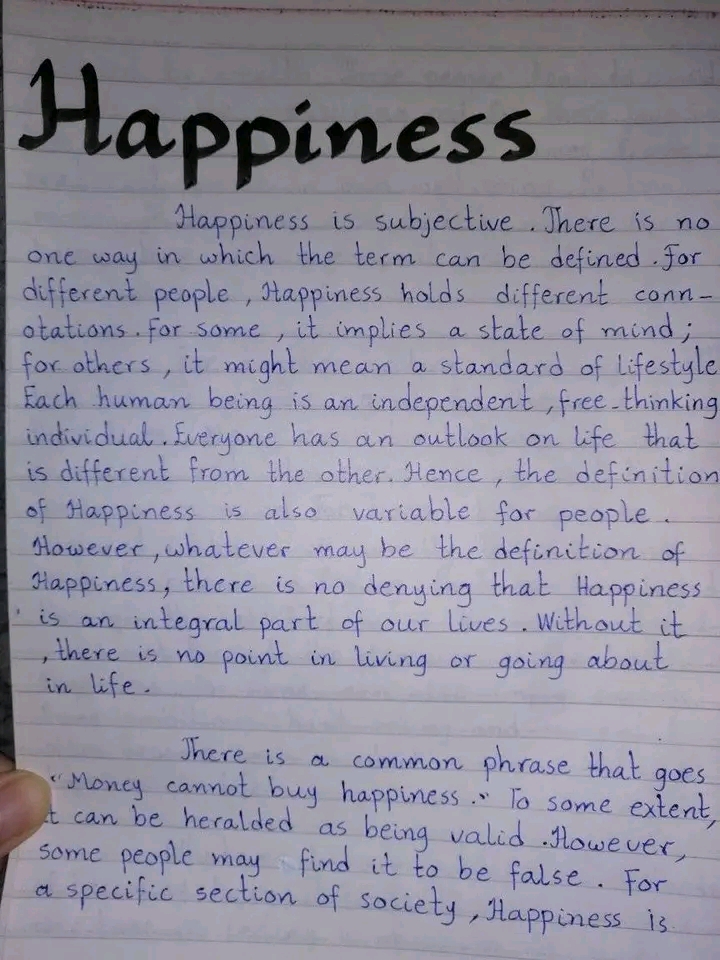 Happiness
Happiness is subjective. There is no
one way in which the term can be defined. For
different people, Happiness holds different conn-
otations. For some, it implies a state of mind;
for others, it might mean a standard of lifestyle
Each human being is an independent, free-thinking
individual. Everyone has an outlook on life that
is different from the other. Hence, the definition
of Happiness is also variable for people.
However, whatever may be the definition of
Happiness, there is no denying that Happiness
is an integral part of our lives. Without it
, there is no point in living or going about
in life.
There is a common phrase that goes
"Money cannot buy happiness." To some extent,
it can be heralded as being valid. However,
some people may find it to be false. For
a specific section of society, Happiness is